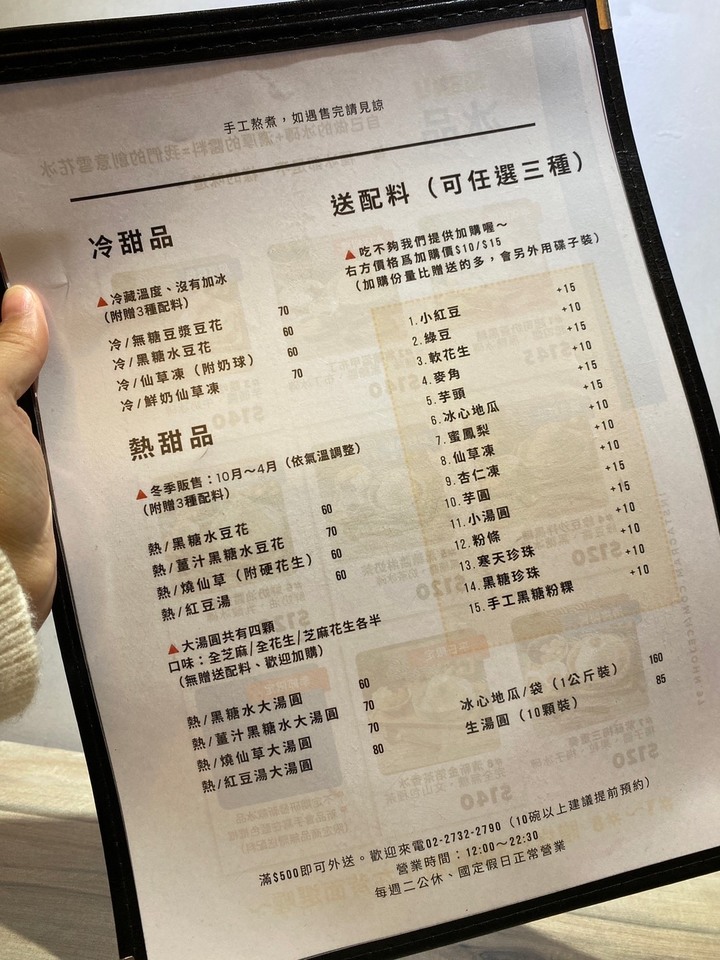 手工熬煮，如遇售完請見諒
冷甜品
▲冷藏溫度、沒有加冰
（附贈3種配料）
冷/無糖豆漿豆花 70
冷/黑糖水豆花 60
冷/仙草凍（附奶球） 60
冷/鮮奶仙草凍 70
熱甜品
▲冬季販售：10月～4月（依氣溫調整）
（附贈3種配料）
熱/黑糖水豆花 60
熱/薑汁黑糖水豆花 70
熱/燒仙草（附硬花生） 60
熱/紅豆湯 60
▲大湯圓共有四顆
口味：全芝麻/全花生/芝麻花生各半
（無贈送配料、歡迎加購）
熱/黑糖水大湯圓 60
熱/薑汁黑糖水大湯圓 70
熱/燒仙草大湯圓 70
熱/紅豆湯大湯圓 80
送配料（可任選三種）
▲吃不夠我們提供加購喔～
右方價格爲加購價$10/$15
（加購份量比贈送的多，會另外用碟子裝）
1.小紅豆 +15
2.綠豆 +10
3.軟花生 +15
4.麥角 +10
5.芋頭 +15
6.冰心地瓜 +15
7.蜜鳳梨 +10
8.仙草凍 +10
9.杏仁凍 +10
10.芋圓 +15
11.小湯圓 +15
12.粉條 +10
13.寒天珍珠 +10
14.黑糖珍珠 +10
15.手工黑糖粉粿 +10
冰心地瓜/袋（1公斤裝） 160
生湯圓（10顆裝） 85
滿$500即可外送。歡迎來電02-2732-2790（10碗以上建議提前預約）
營業時間：12:00～22:30
每週二公休、國定假日正常營業